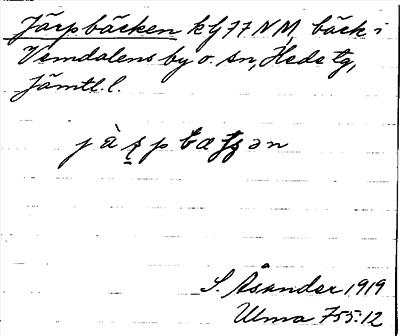 Järpbäcken k G 77 NM, bäck i
Vemdalens by o. sn, Hede tg,
Jämtl. l.
S. Åsander 1919
Ulma 755:12